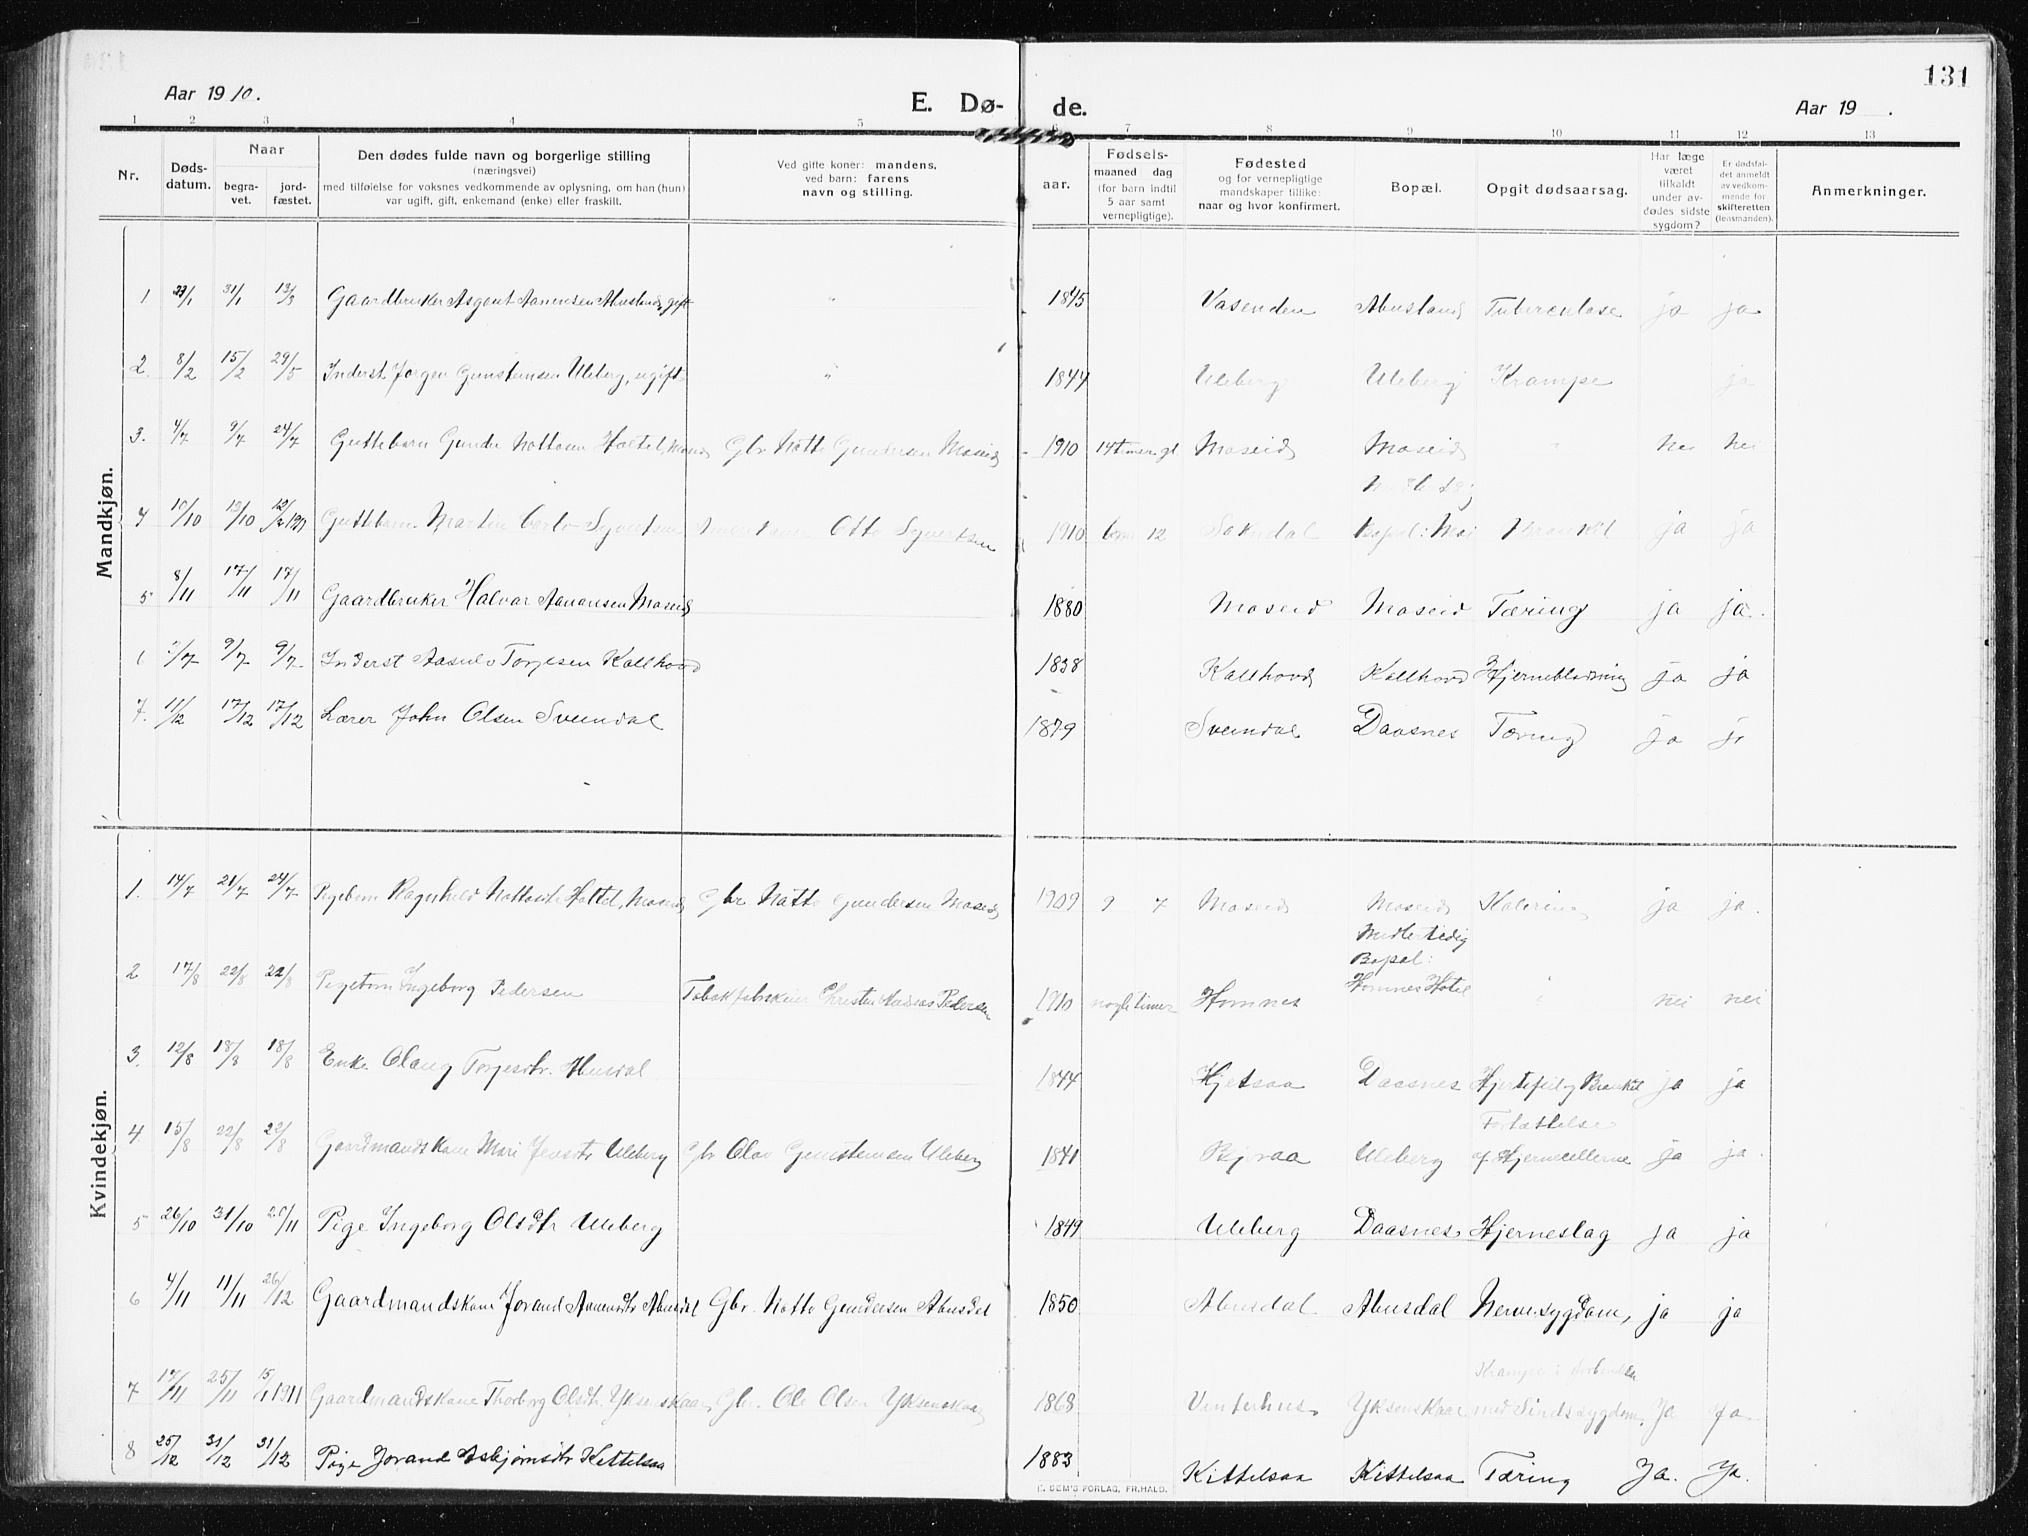 131
Aar 1910.
E. Dø- de.
Aar 19 .
1 2 3 4 5 6 7 8 9 10 11 12 13
Nr. Døds-datum. Naar begra-vet. jord-fæstet. Den dødes fulde navn og borgerlige stilling (næringsvei) med tilføielse for voksnes vedkommende av oplysning, om han (hun) var ugift, gift, enkemand (enke) eller fraskilt. Ved gifte koner: mandens, ved barn: farens navn og stilling. aar. Fødsels- maaned dag (for barn indtil 5 aar samt vernepligtige). Fødested og for vernepligtige mandskaper tillike: naar og hvor konfirmert. Bopæl. Opgit dødsaarsag. Har læge været tilkaldt under av-dødes sidste sygdom? Er dødsfal-det anmeldt av vedkom-mende for skifteretten (lensmanden). Anmerkninger.
Mandkjøn.
1 31/1 13/3 Gaardbruker Asgout Aanensen Abusland, gift " 1845 Vasenden Abusland Tuberculose ja ja
2. 8/2 15/2 29/5 Inderst Jørgen Gunsteinsen Uleberg, ugift " 1844 Uleberg Uleberg Krampe ja
3. 4/7 9/7 24/7 Guttebarn Gunder Nottosen Holtet, Gbr. Notto Gundersen Moseid 1910 14 timer gl. Moseid Moseid " nei nei
4 10/10 13/10 12/2 1911 Guttebarn Martin Carlo Syvertsen Otto Syvertsen 1910 12 Sokndal ja ja
5 8/11 17/11 17/11 Gaardbruker Halvor Aanonsen Moseid 1880 Moseid Moseid Tæring ja ja.
6 9/7 9/7 Inderst Aasulv Torjesen Kallhovd 1838 Kallhovd Kallhovd Hjerneblødning ja ja
7. 11/12 17/12 17/12 Lærer John Olsen Sveindal 1879 Sveindal Daasnes Tæring ja ja
Kvindekjøn.
1. 14/7 21/7 24/7 Pigebarn Ragnhild Nottosdtr Holtet, Moseid Gbr. Notto Gundersen Moseid 1909 9 7 Moseid Moseid Kolerine ja ja.
2 17/8 22/8 22/8 Pigebarn Ingeborg Pedersen Tobakfabrikeier Christen Andreas Pedersen 1910 nogle timer Homnes Midlertidig Bopæl: Homnes Hotel " nei nei
3. 12/8 18/8 18/8 Enke Olaug Torjesdtr. Husdal 1844 Hjetsaa Daasnes Hjertefeil og Bronkit ja ja
4 15/8 22/8 22/8 Gaardmandskone Mari Jensdtr Uleberg Gbr Olav Gunsteinsen Uleberg 1841 Bjoraa Uleberg Forkættelse af Hjernecellerne ja ja.
5 26/10 31/10 20/11 Pige Ingeborg Olsdtr Uleberg 1849 Uleberg Daasnes Hjerneslag ja ja
6 4/11 11/11 26/12 Gaardmandskone Jorand Aanensdtr Abusdal Gbr. Notto Gundersen Abusdal 1850 Abusdal Abusdal Nervesygdom, ja ja
7 17/11 25/11 15/1 1911 Gaardmandskone Thorborg Olsdtr. Yksenskaar Gbr. Ole Olsen Yksenskaar 1868 Vinterhus Yksenskaar Krampe i med Sindssygdom. Ja Ja
8 25/12 31/12 31/12 Pige Jorand Asbjørnsdtr Kittelsaa 1883 Kittelsaa Kittelsaa Tæring Ja. Ja.
SEM'S FORLAG, FR.HALD.